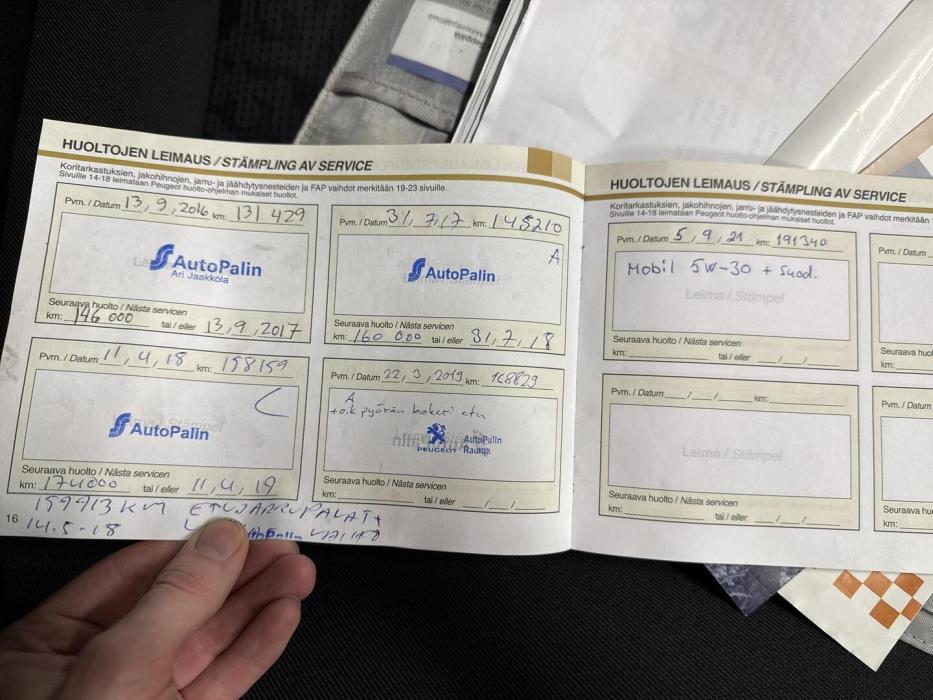 HUOLTOJEN LEIMAUS / STÄMPLING AV SERVICE
Koritarkastuksien, jakohihnojen, jarru- ja jäähdytysnesteiden ja FAP vaihdot merkitään 19-23 sivuille.
Sivuille 14-18 leimataan Peugeot huolto-ohjelman mukaiset huollot.
Pvm. / Datum 13, 9, 2016 km: 131 429
AutoPalin
Ari Jaakkola
Seuraava huolto / Nästa servicen
km: 146 000 tai / eller 13, 9, 2017
Pvm. / Datum 31, 7, 17 km: 145210
A
AutoPalin
Seuraava huolto / Nästa servicen
km: 160 000 tai / eller 31, 7, 18
Pvm. / Datum 11, 4, 18 km: 158159
C
AutoPalin
Seuraava huolto / Nästa servicen
km: 174000 tai / eller 11, 4, 19
159913 KM ETUJARRUPALAT+
14.5-18
16
Pvm. / Datum 22, 3, 2019 km: 168829
A
+oik pyörän
PEUGEOT
AutoPalin
Rauma
Seuraava huolto / Nästa servicen
km: tai / eller
HUOLTOJEN LEIMAUS / STÄMPLING AV SERVICE
Koritarkastuksien, jakohihnojen, jarru- ja jäähdytysnesteiden ja FAP vaihdot merkitään
Sivuille 14-18 leimataan Peugeot huolto-ohjelman mukaiset huollot.
Pvm. / Datum 5, 9, 21 km: 191340
Mobil 5W-30 + Suod.
Leima / Stämpel
Seuraava huolto / Nästa servicen
km: tai / eller
Pvm. / Datum km:
Leima / Stämpel
Seuraava huolto / Nästa servicen
km: tai / eller
Pvm. / Datum
km:
Pvm. / Datum
Seuraava
km: